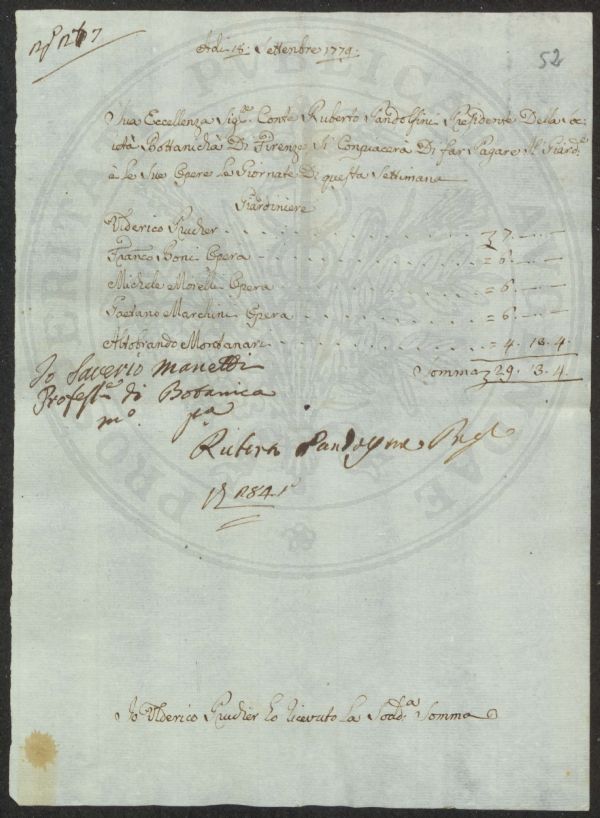 52
Adi 18. Settembre 1779.
Sua Eccellenza Sig.e Conte Ruberto Pandolfini Presidente Della Soc
ietà Bottanicha Di Firenze Si Conpiacera Di far Pagare Il Giard.e
à le Sue Opere le Giornate Di questa Settimana
Giardiniere
Ulderico Prucher 7
Franc.o Boni Opera = 6
Michele Morelli Opera = 6
Gaetano Marchini Opera = 6
Aldobrando Montanari = 4. 13. 4
Somma 29. 13. 4
Io Saverio Manetti
Profess.re di Botanica
m.o p.a
Ruberto Pandolfini Pres.e
Io Ulderico Prucher ho ricevuto La Sod.a Somma
PRO PUBLICA